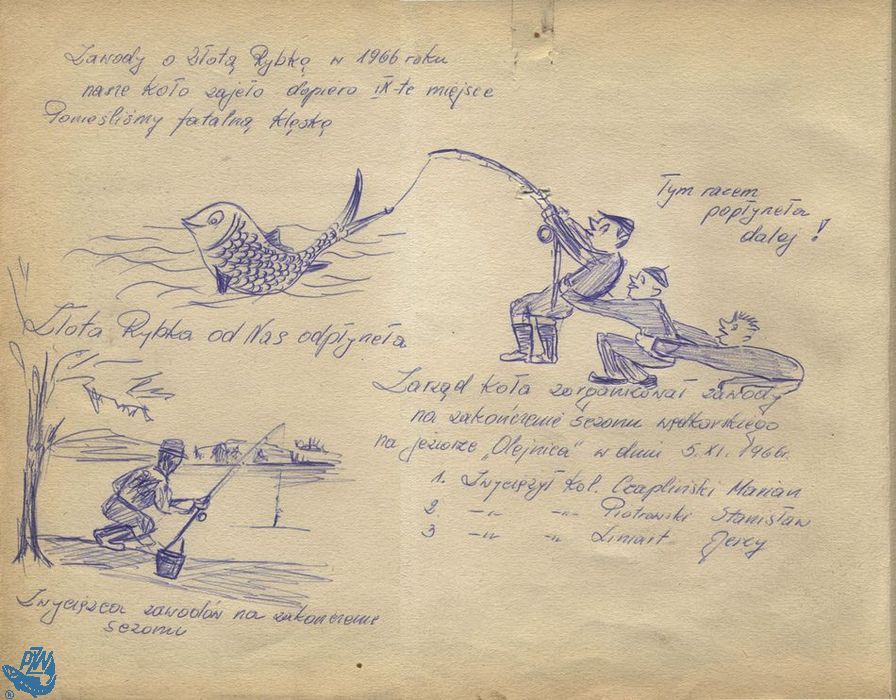 Zawody o Złotą Rybkę w 1966 roku
nasze koło zajęło dopiero IX-te miejsce
Ponieśliśmy fatalną klęskę
Tym razem
popłynęła
dalej !
Złota Rybka od Nas odpłynęła
Zarząd koła zorganizował zawody
na zakończenie sezonu wędkarskiego
na jeziorze „Olejnica" w dniu 5.XI.1966r.
1. Zwyciężył Kol. Czapliński Marian
2 -„- -„- Piotrowski Stanisław
3 -„- -„- Jerzy
Zwycięzca zawodów na zakończenie
sezonu
PZW
®